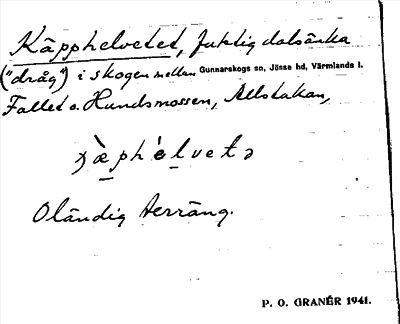 Käpphelvetet, fuktig dalsänka
("dråg") i skogen mellan Gunnarskogs sn, Jösse hd, Värmlands l.
Fallet o. Hundsmossen, Allstakan,
Oländig terräng.
P. O. GRANÉR 1941.